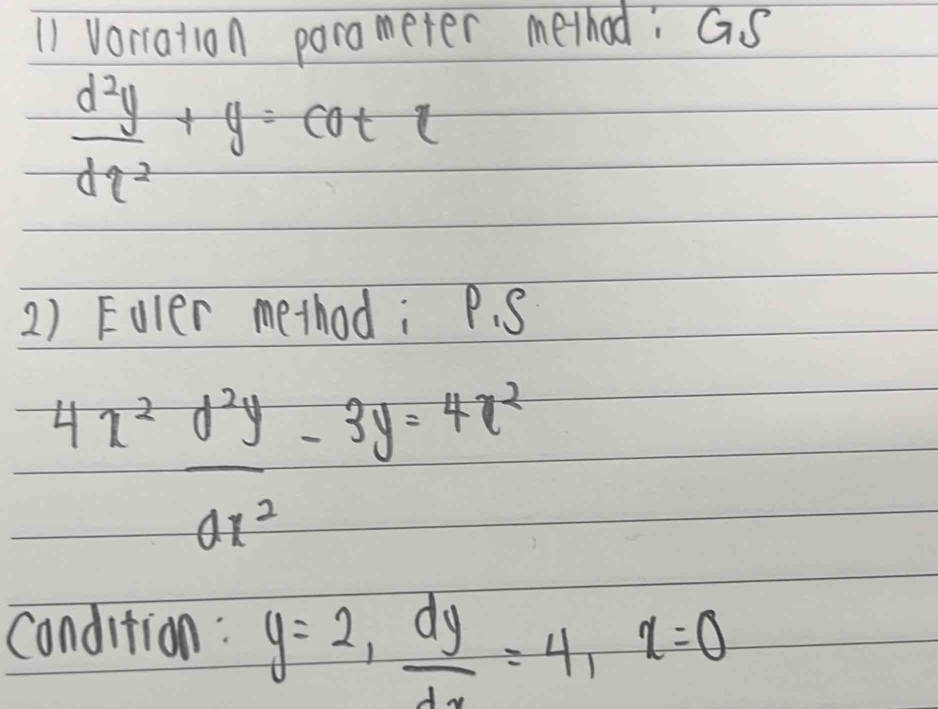 1) Variation parameter method: GS
d²y/dx² + y = cot x
2) Euler method; P.S
4x² d²y/dx² - 3y = 4x²
Condition: y=2, dy/dx = 4, x=0